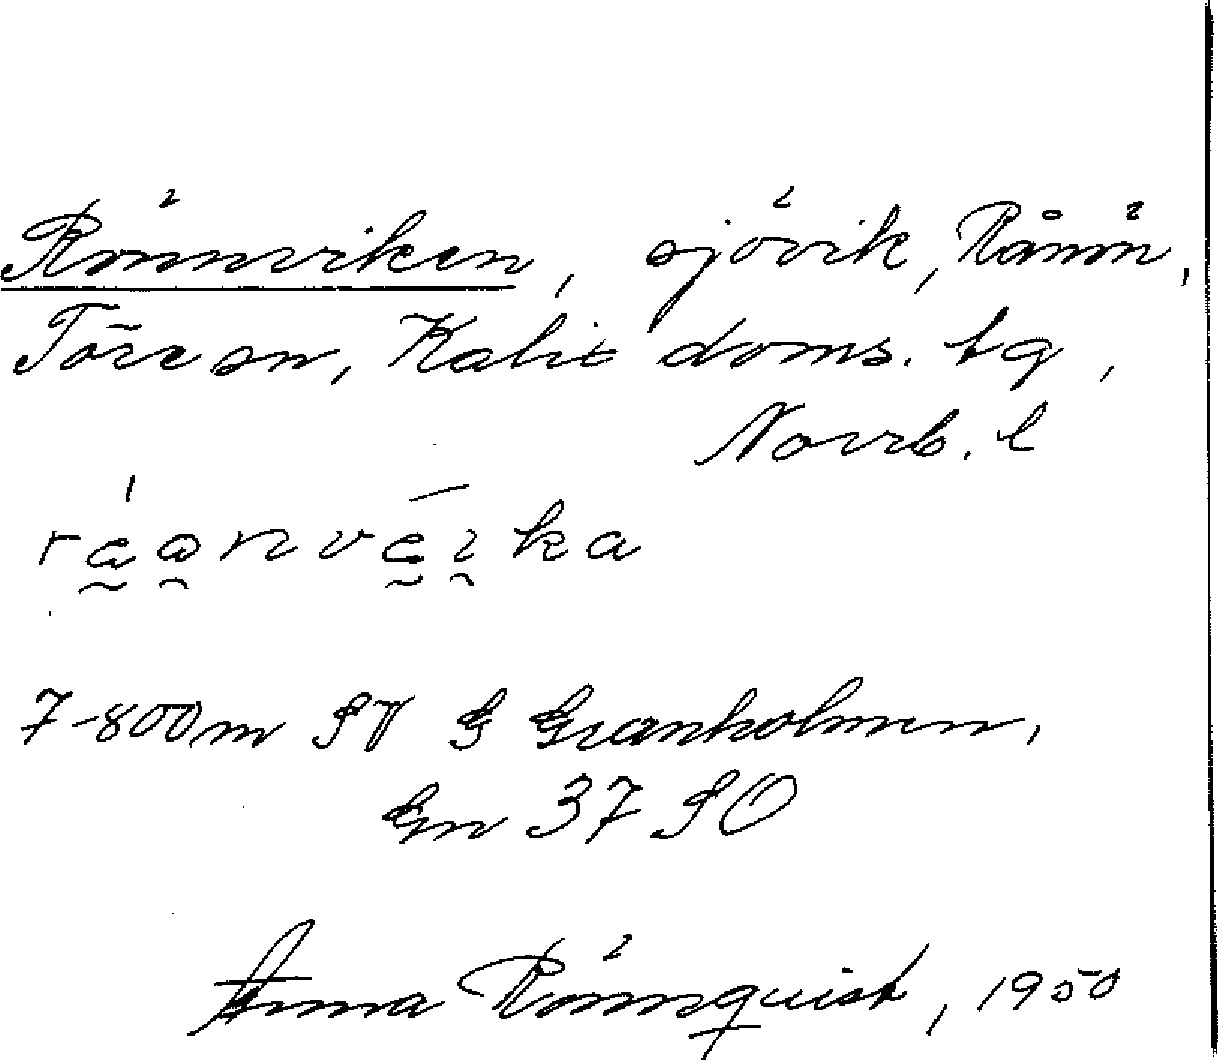 Rönnviken, sjövik, Rånön,
Töre sn, Kalix doms. tg,
Norrb. l
7-800 m SV G Granholmen,
Gn 37 SO
Anna Rönnquist, 1950